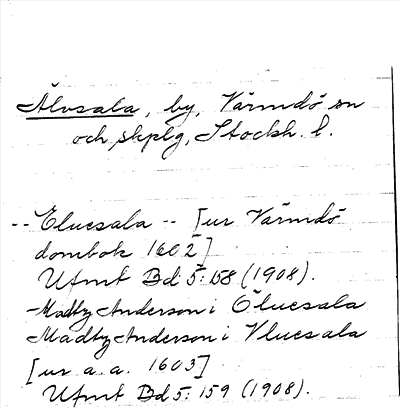 Älvsala, by, Värmdö sn
och skplg, Stockh. l.
-- Eluesala -- [ur Värmdö
dombok 1602]
Ufmt Bd 5:158 (1908).
- Madtz Anderson i Öluesala
Madtz Anderson i Vluesala
[ur a.a. 1603]
Ufmt Bd 5:159 (1908).